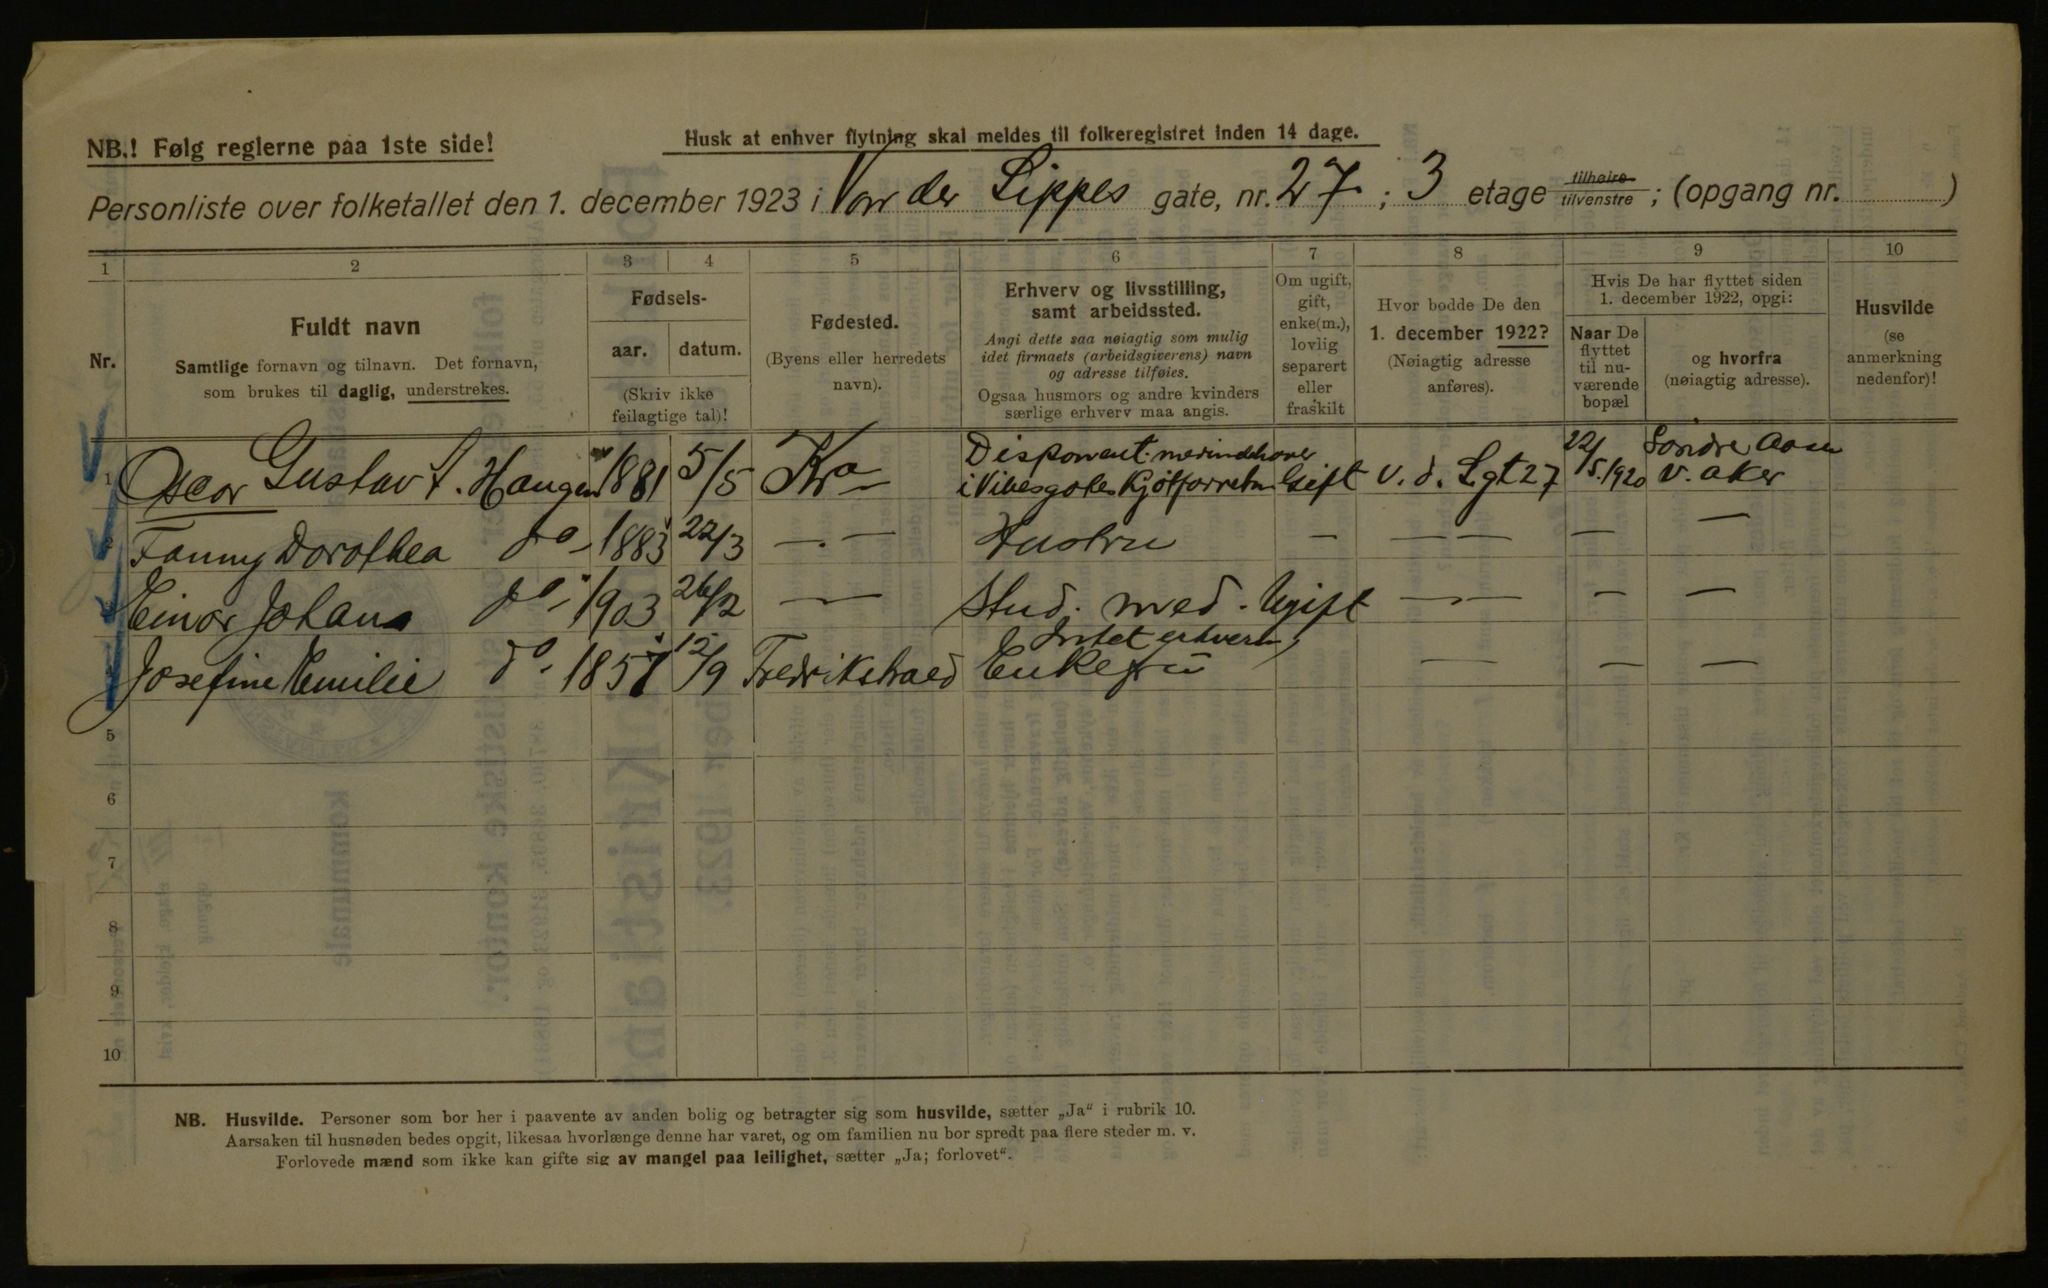 NB.! Følg reglerne paa 1ste side!
Husk at enhver flytning skal meldes til folkeregistret inden 14 dage.
Personliste over folketallet den 1. december 1923 i Von der Lippes gate, nr. 27.; 3 etage tilhøire/tilvenstre; (opgang nr. )
1 2 3 4 5 6 7 8 9 10
Nr.
Fuldt navn
Samtlige fornavn og tilnavn. Det fornavn,
som brukes til daglig, understrekes.
Fødsels-
aar. datum.
(Skriv ikke
feilagtige tal)!
Fødested.
(Byens eller herredets
navn).
Erhverv og livsstilling,
samt arbeidssted.
Angi dette saa nøiagtig som mulig
idet firmaets (arbeidsgiverens) navn
og adresse tilføies.
Ogsaa husmors og andre kvinders
særlige erhverv maa angis.
Om ugift,
gift,
enke(m.),
lovlig
separert
eller
fraskilt
Hvor bodde De den
1. december 1922?
(Nøiagtig adresse
anføres).
Hvis De har flyttet siden
1. december 1922, opgi:
Naar De
flyttet
til nu-
værende
bopæl
og hvorfra
(nøiagtig adresse).
Husvilde
(se
anmerkning
nedenfor)!
1 Oscar Gustav A. Haugen 1881 5/5 Kra Disponent. medindehaver i Vibesgates Kjøtforretn Gift v. d. Lgt 27 22/5.1920 Søndre Aasen v. aker
2 Fanny Dorothea do - 1883 22/3 —.— Hustru — — — — —
3 Einar Johan do - 1903 26/2 — Stud. med. Ugift —.— — —
4 Josefine Emilie do - 1857 12/9 Fredrikstad Enkefru Intet erhverv — — —
5
6
7
8
9
10
NB. Husvilde. Personer som bor her i paavente av anden bolig og betragter sig som husvilde, sætter „Ja" i rubrik 10.
Aarsaken til husnøden bedes opgit, likesaa hvorlænge denne har varet, og om familien nu bor spredt paa flere steder m. v.
Forlovede mænd som ikke kan gifte sig av mangel paa leilighet, sætter „Ja; forlovet".